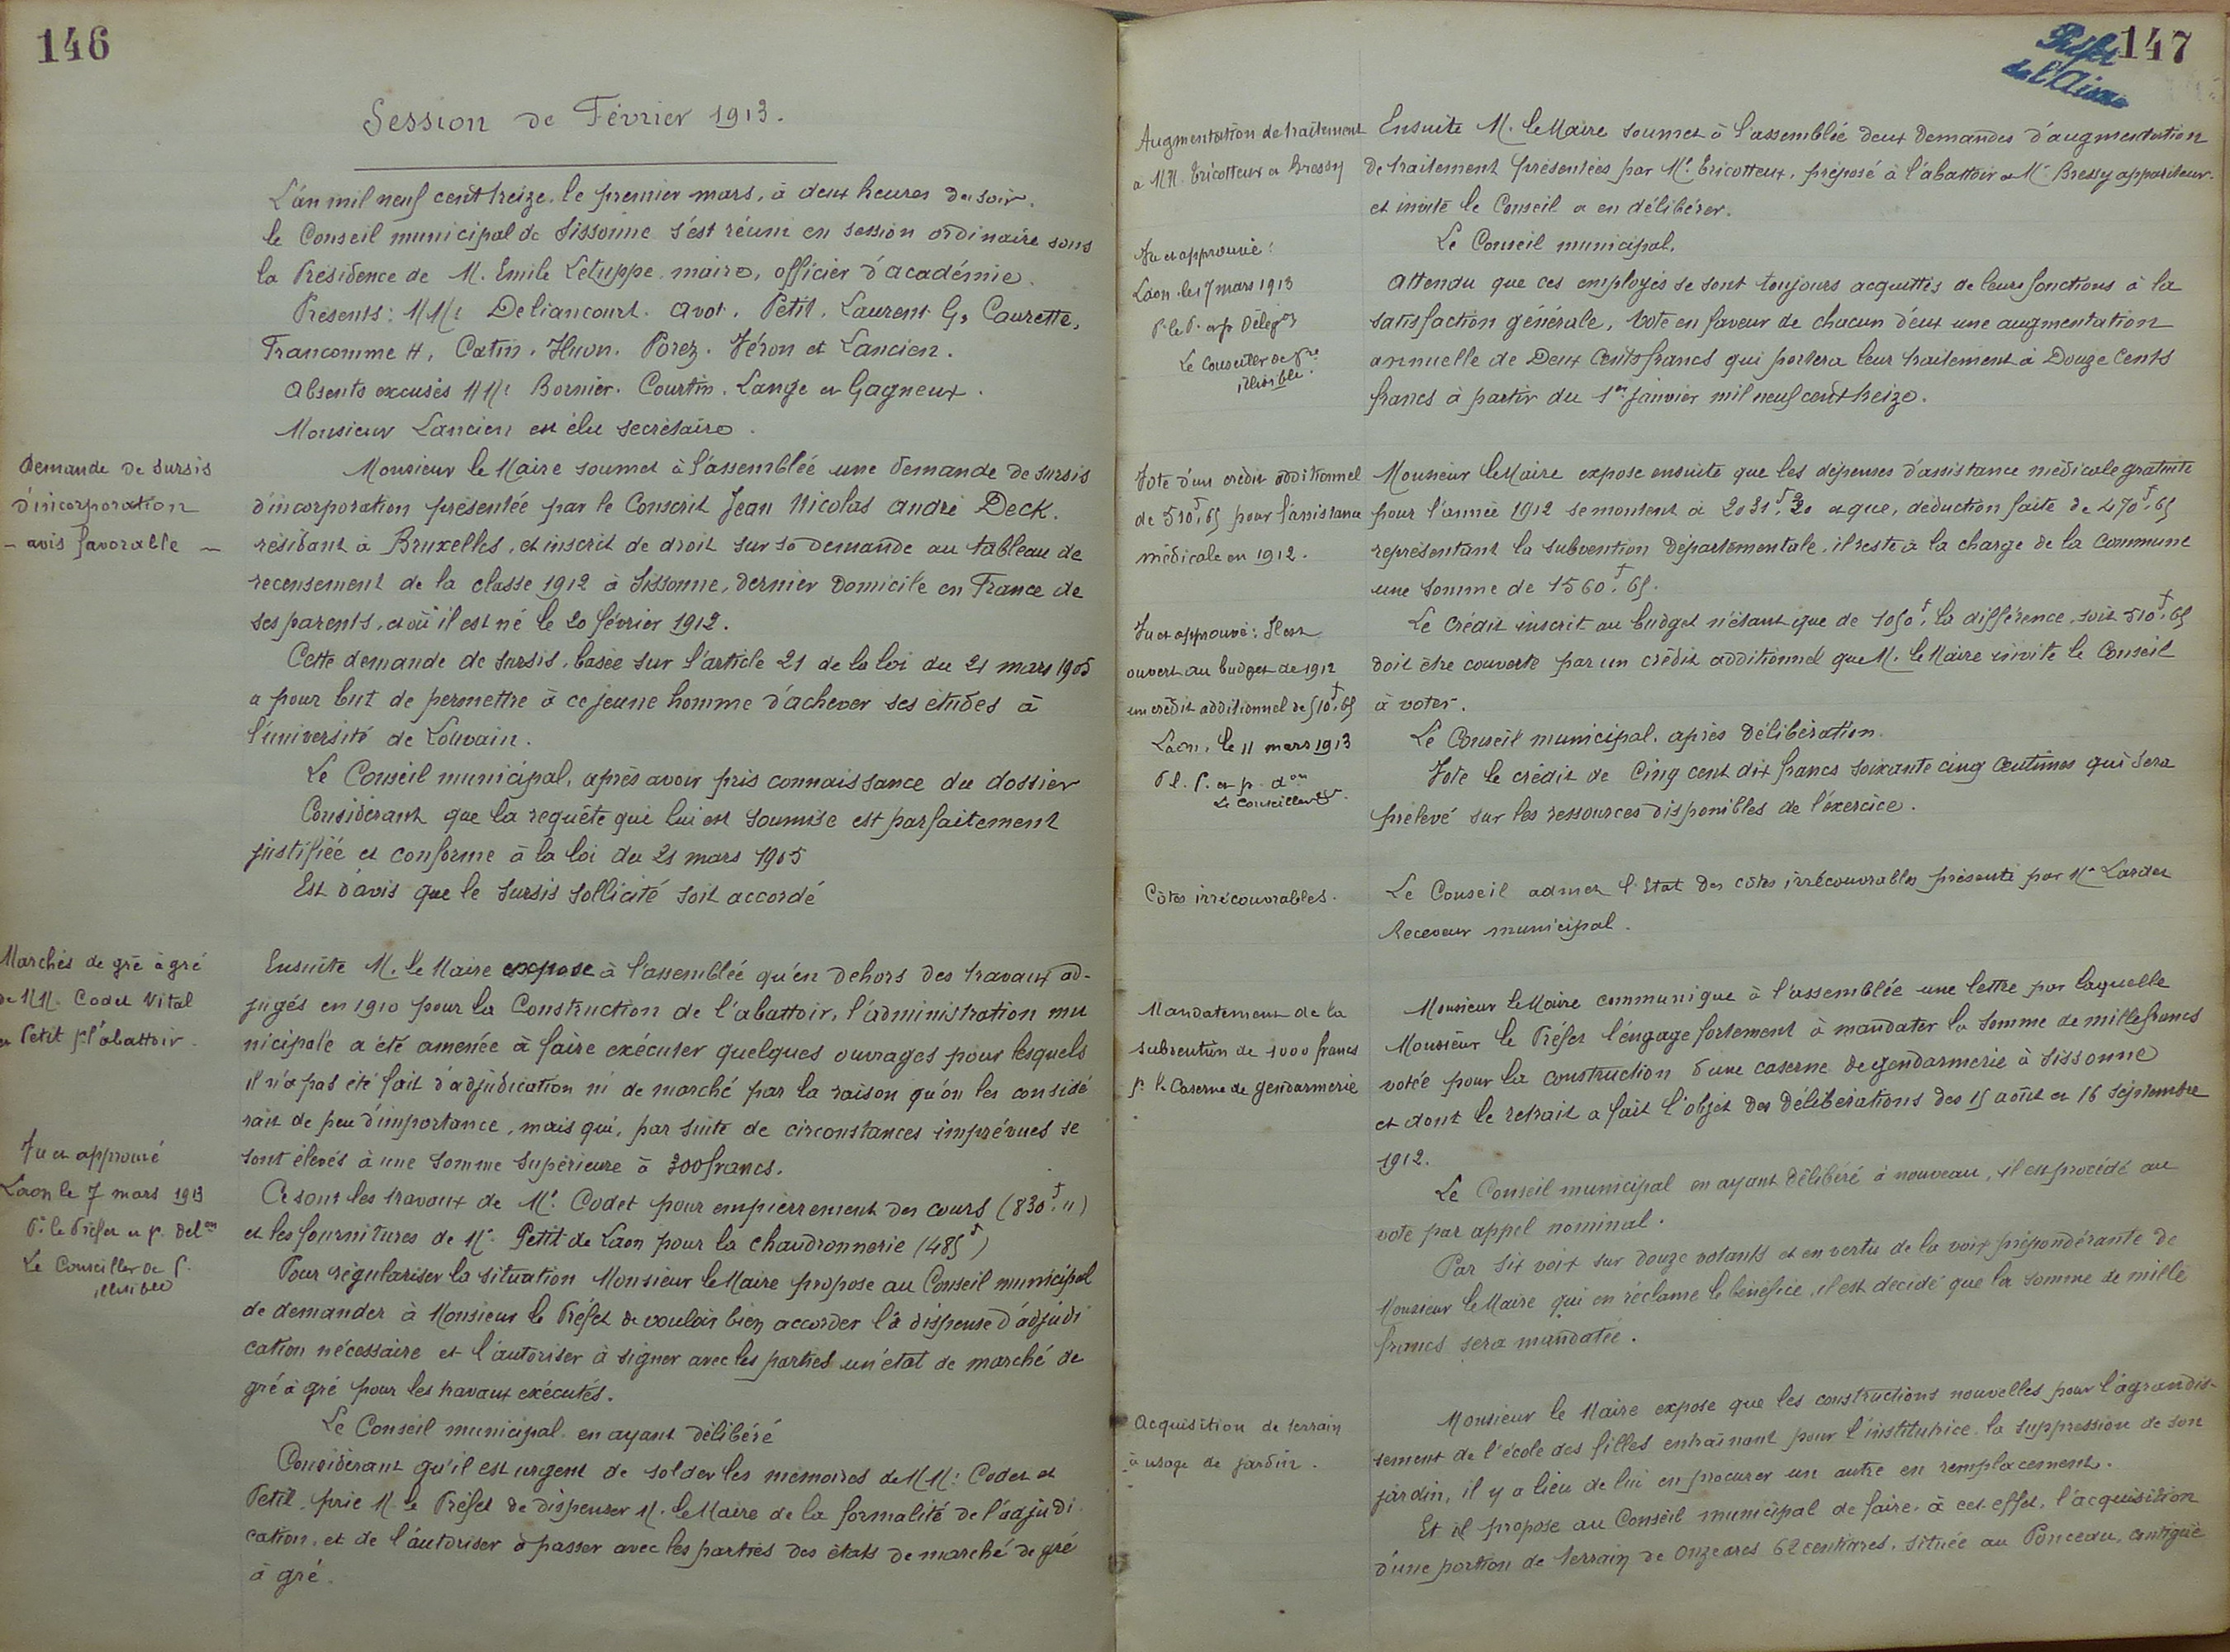 146
Session de Février 1913.
L'an mil neuf cent treize, le premier mars, à deux heures du soir,
le Conseil municipal de Sissonne s'est réuni en session ordinaire sous
la Présidence de M. Emile Letuppe, maire, officier d'académie.
Présents: MMrs Deliancourt, Avot, Petit, Laurent G, Caurette,
Francomme H, Catin, Huon, Porez, Véron et Lancien.
Absents excusés MMrs Bornier, Courtin, Lange et Gagneux.
Monsieur Lancien est élu secrétaire.
Demande de sursis
d'incorporation
- avis favorable -
Monsieur le Maire soumet à l'assemblée une demande de sursis
d'incorporation présentée par le Conscrit Jean Nicolas André Deck,
résidant à Bruxelles, et inscrit de droit sur sa demande au tableau de
recensement de la classe 1912 à Sissonne, dernier domicile en France de
ses parents, et où il est né le 20 février 1912.
Cette demande de sursis, basée sur l'article 21 de la loi du 21 mars 1905
a pour but de permettre à ce jeune homme d'achever ses études à
l'université de Louvain.
Le Conseil municipal, après avoir pris connaissance du dossier
Considérant que la requête qui lui est soumise est parfaitement
justifiée et conforme à la loi du 21 mars 1905
Est d'avis que le sursis sollicité soit accordé
Marchés de gré à gré
de MM. Codet Vital
et Petit pr l'abattoir.
Ensuite M. le Maire expose à l'assemblée qu'en dehors des travaux ad-
jugés en 1910 pour la Construction de l'abattoir, l'administration mu
nicipale a été amenée à faire exécuter quelques ouvrages pour lesquels
il n'a pas été fait d'adjudication ni de marché par la raison qu'on les considé
rait de peu d'importance, mais qui, par suite de circonstances imprévues se
sont élevés à une somme supérieure à 300 francs.
Vu et approuvé
Laon le 7 mars 1913
Pr le Préfet et p. Delon
Le Conseiller de P.
illisible
Ce sont les travaux de Mr Codet pour empierrement des cours (830f,")
et les fournitures de Mr Petit de Laon pour la chaudronnerie (485f)
Pour régulariser la situation Monsieur le Maire propose au Conseil municipal
de demander à Monsieur le Préfet de vouloir bien accorder la dispense d'adjudi
cation nécessaire et l'autoriser à signer avec les parties un état de marché de
gré à gré pour les travaux exécutés.
Le Conseil municipal en ayant délibéré
Considérant qu'il est urgent de solder les mémoires de MMrs Codet et
Petit, prie M. le Préfet de dispenser M. le Maire de la formalité de l'adjudi
cation, et de l'autoriser à passer avec les parties des états de marché de gré
à gré.
147
Préfet
de l'Aisne
Augmentation de traitement
à MM. Tricotteux et Bressy
Ensuite M. le Maire soumet à l'assemblée deux demandes d'augmentation
de traitement présentées par Mr Tricotteux, préposé à l'abattoir et Mr Bressy appariteur.
et invite le Conseil à en délibérer.
Vu et approuvé:
Laon le 17 mars 1913
P. le P. et p. Délegon
Le Conseiller de Pre
illisible.
Le Conseil municipal,
Attendu que ces employés se sont toujours acquittés de leurs fonctions à la
satisfaction générale, vote en faveur de chacun d'eux une augmentation
annuelle de Deux Cents francs qui portera leur traitement à Douze Cents
francs à partir du 1er janvier mil neuf cent treize.
Vote d'un crédit additionnel
de 510f,65 pour l'assistance
médicale en 1912.
Monsieur le Maire expose ensuite que les dépenses d'assistance médicale gratuite
pour l'année 1912 se montent à 2031f,30 et que, déduction faite de 470f,65
représentant la subvention départementale, il reste à la charge de la Commune
une somme de 1560f,65.
Vu et approuvé: Il est
ouvert au budget de 1912
un crédit additionnel de 510f,65
Laon, le 11 mars 1913
P l. P. et p. don
Le Conseiller
Le Crédit inscrit au budget n'étant que de 1050f, la différence, soit 510f,65
doit être couverte par un crédit additionnel que M. le Maire invite le Conseil
à voter.
Le Conseil municipal, après délibération
Vote le crédit de Cinq cent dix francs soixante cinq centimes qui sera
prélevé sur les ressources disponibles de l'exercice.
Côtes irrécouvrables.
Le Conseil admet l'Etat des côtes irrécouvrables présenté par Mr Lardet
Receveur municipal.
Mandatement de la
subvention de 1000 francs
pr la Caserne de gendarmerie
Monsieur le Maire communique à l'assemblée une lettre par laquelle
Monsieur le Préfet l'engage fortement à mandater la somme de mille francs
votée pour la construction d'une caserne de gendarmerie à Sissonne
et dont le retrait a fait l'objet des délibérations des 15 août et 16 septembre
1912.
Le Conseil municipal en ayant délibéré à nouveau, il est procédé au
vote par appel nominal.
Par six voix sur douze votants et en vertu de la voix prépondérante de
Monsieur le Maire qui en réclame le bénéfice, il est décidé que la somme de mille
francs sera mandatée.
Acquisition de terrain
à usage de jardin.
Monsieur le Maire expose que les constructions nouvelles pour l'agrandis-
sement de l'école des filles entraînant pour l'institutrice la suppression de son
jardin, il y a lieu de lui en procurer un autre en remplacement.
Et il propose au Conseil municipal de faire, à cet effet, l'acquisition
d'une portion de terrain de Onze ares 62 centiares, située au Ponceau, contiguë